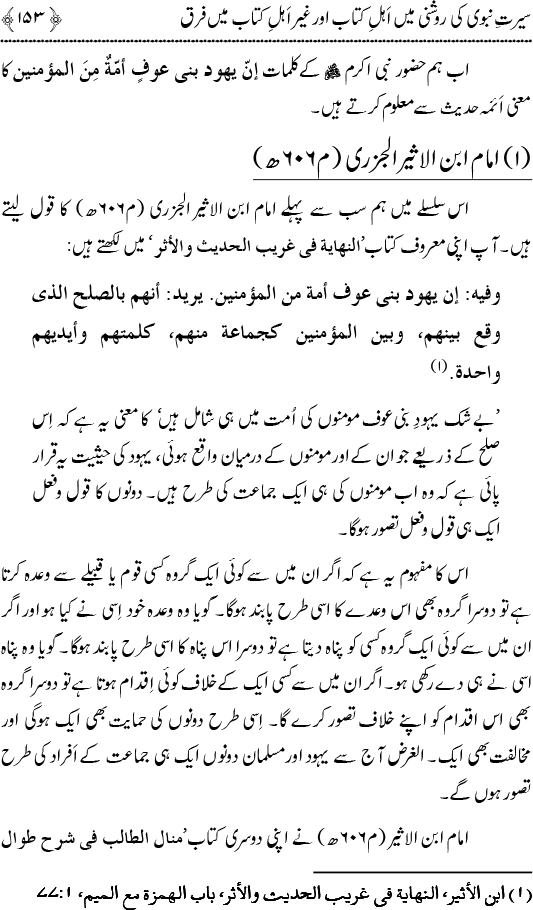 سیرتِ نبوی کی روشنی میں اَہلِ کتاب اور غیر اَہلِ کتاب میں فرق ﴿۱۵۳﴾
اب ہم حضور نبی اکرم ﷺ کے کلمات إنّ يهود بنى عوفٍ أمّةٌ مِنَ المؤمنين کا
معنی اَئمہ حدیث سے معلوم کرتے ہیں۔
(۱) امام ابن الاثیر الجزری (م ۶۰۶ھ)
اس سلسلے میں ہم سب سے پہلے امام ابن الاثیر الجزری (م ۶۰۶ھ) کا قول لیتے
ہیں۔ آپ اپنی معروف کتاب ’النهاية فى غريب الحديث والأثر‘ میں لکھتے ہیں:
وفيه: إن يهود بنى عوف أمة من المؤمنين. يريد: أنهم بالصلح الذى
وقع بينهم، وبين المؤمنين كجماعة منهم، كلمتهم وأيديهم
واحدة.(۱)
’بے شک یہودِ بنی عوف مومنوں کی اُمت میں ہی شامل ہیں‘ کا معنی یہ ہے کہ اِس
صلح کے ذریعے جو ان کے اور مومنوں کے درمیان واقع ہوئی، یہود کی حیثیت یہ قرار
پائی ہے کہ وہ اب مومنوں کی ہی ایک جماعت کی طرح ہیں۔ دونوں کا قول و فعل
ایک ہی قول و فعل تصور ہوگا۔
اس کا مفہوم یہ ہے کہ اگر ان میں سے کوئی ایک گروہ کسی قوم یا قبیلے سے وعدہ کرتا
ہے تو دوسرا گروہ بھی اس وعدے کا اسی طرح پابند ہوگا۔ گویا وہ وعدہ خود اِسی نے کیا ہو اور اگر
ان میں سے کوئی ایک گروہ کسی کو پناہ دیتا ہے تو دوسرا اس پناہ کا اسی طرح پابند ہوگا۔ گویا وہ پناہ
اسی نے ہی دے رکھی ہو۔ اگر ان میں سے کسی ایک کے خلاف کوئی اِقدام ہوتا ہے تو دوسرا گروہ
بھی اس اقدام کو اپنے خلاف تصور کرے گا۔ اِسی طرح دونوں کی حمایت بھی ایک ہوگی اور
مخالفت بھی ایک۔ الغرض آج سے یہود اور مسلمان دونوں ایک ہی جماعت کے اَفراد کی طرح
تصور ہوں گے۔
امام ابن الاثیر (م ۶۰۶ھ) نے اپنی دوسری کتاب ’منال الطالب فى شرح طوال
(۱) ابن الأثير، النهاية فى غريب الحديث والأثر، باب الهمزة مع الميم، ۱: ۷۷